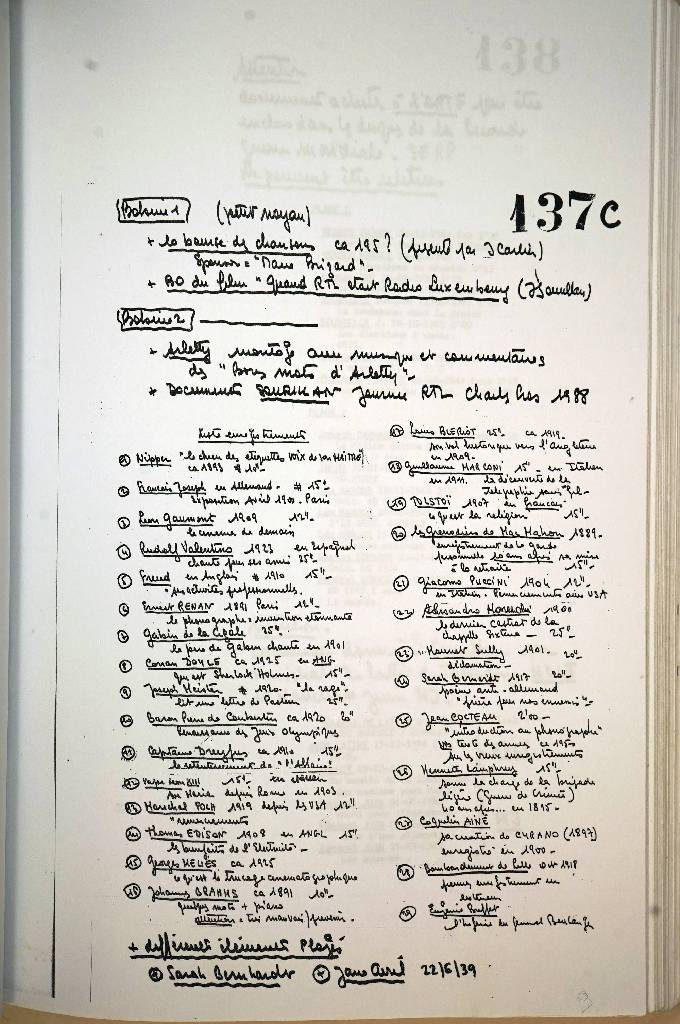 137C
Bobine 1 (petit noyau)
+ la bourse des chansons ca 195? (présenté par J Carlin)
Sponsor = "Marie Brizard"_
+ BO du film "Quand RTL était Radio Luxembourg
Bobine 2
+ Arletty montage avec musique et commentaires
des "Bons mots d'Arletty"_
+ Documents Journée RTL Charles Cros 1988
liste enregistrements
① Nipper "le chien des étiquettes VOIX de son MAITRE"
ca 1893 # 10"_
② François Joseph en Allemand_ # 15"_
Exposition 1900_ Paris
③ Léon Gaumont 1909 12"_
le cinéma de demain
④ Rudolf Valentino 1923 en Espagnol
chante pour ses amis 25"_
⑤ Freud en Anglais # 1910 15"_
"ses activités professionnelles_
⑥ Ernest RENAN 1891 Paris 12"_
le phonographe = invention étonnante
⑦ Gabin de la Cigale 25"_
le père de Gabin chante en 1901
⑧ Conan DOYLE ca 1925 en ANG_
qui est Sherlock Holmes_ 15"_
⑨ Joseph Meister # 1920_ "la rage"_
lit une lettre de Pasteur 25"_
⑩ Baron Pierre de Coubertin ca 1920 20"
Renaissance des Jeux Olympiques
⑪ Capitaine Dreyfus ca 1910 15"_
le retentissement de "l'Affaire"
⑫ Pape Léon XIII 15"_ en
Ave Maria depuis Rome en 1903_
⑬ Maréchal FOCH 1919 depuis les USA 12"_
remerciements
⑭ Thomas EDISON 1908 en ANGL 15"_
les bienfaits de l'Electricité_
⑮ Georges MELIES ca 1925
"ce qu'est le trucage cinématographique
⑯ Johannes BRAHMS ca 1891 10"_
quelques mots + piano
attention = très mauvais/prévenir_
⑰ Louis BLERIOT 25"_ ca 1919_
son vol historique vers l'Angleterre
en 1909_
⑱ Guillaume MARCONI 15"_ en Italien
en 1911_ la découverte de la
Télégraphie sans fil_
⑲ TOLSTOÏ 1907 en français
"ce qu'est la religion" 15"_
⑳ les Grenadiers de Mac Mahon 1889_
enregistrement de la garde
personnelle 10 ans après sa mise
à la retraite 15"_
㉑ Giacomo PUCCINI 1904 12"_
en Italien_ Remerciements aux USA
㉒ Alessandro Moreschi 1900
le dernier castrat de la
chapelle Sixtine_ 25"_
㉓ Mounet Sully 1901_ 20"_
déclamation_
㉔ Sarah Bernhardt 1917 20"_
poème anti-allemand
"prière pour nos ennemis"_
㉕ Jean COCTEAU 2'00_
"introduction au phonographe"
texte des années ca 1950
sur les vieux enregistrements
㉖ Kenneth Lamphrey 15"_
sonne la charge de la brigade
légère (Guerre de Crimée)
40 ans après... en 1895_
㉗ Coquelin AINÉ
sa création de CYRANO (1897)
enregistré en 1900_
㉘ Bombardement de Lille oct 1918
premier enregistrement en
extérieur
㉙ Eugénie Buffet
+ différents éléments
Sarah Bernhardt Jane Avril 22/6/39